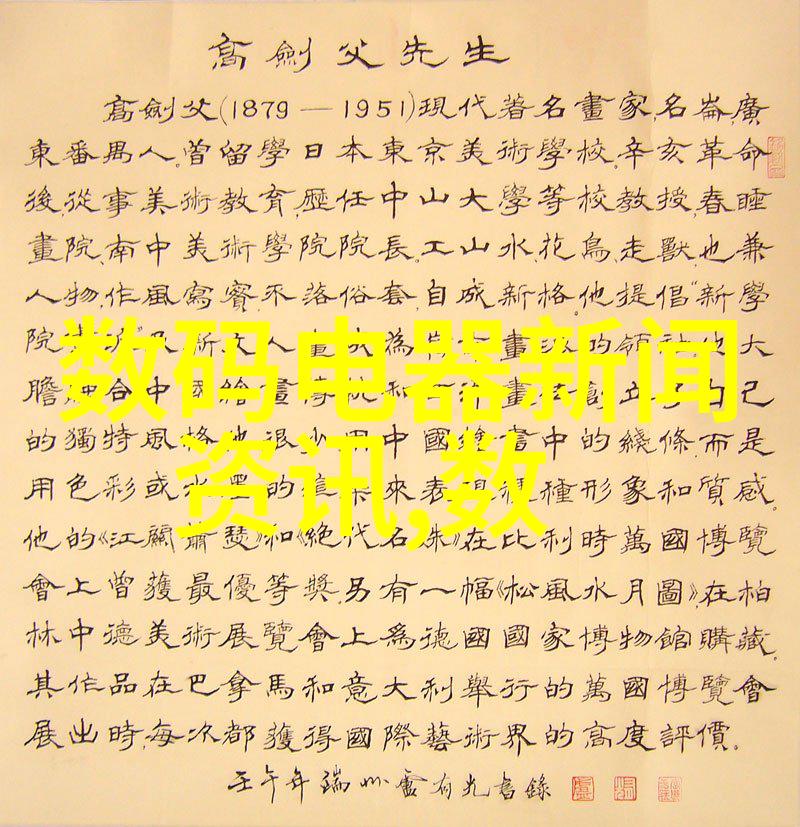 高劍父先生
高劍父(1879—1951)現代著名畫家,名崙,廣
東番禺人。曾留學日本東京美術學校。辛亥革命
後,從事美術教育,歷任中山大學等校教授,春睡
畫院、南中美術學院院長。工山水、花鳥、走獸,也兼
人物,作風寫實,不落俗套,自成新格。他提倡“新學
院
大
膽 合中國 畫 和
己
的獨特風格。他很少用中國 書中的綫條,而是
用色彩或水墨的 來表現種種形象和質感。
他的《江關蕭瑟》和《絕代名姝》在比利時萬國博覽
會上曾獲最優等獎。另有一幅《松風水月圖》,在柏
林中德美術展覽會上爲德國國家博物館購藏。
其作品在巴拿馬和意大利舉行的萬國博覽會
展出時,每次都獲得國際藝術界的高度評價。
壬午年端州 有光書錄
数码电器新闻
资讯,数